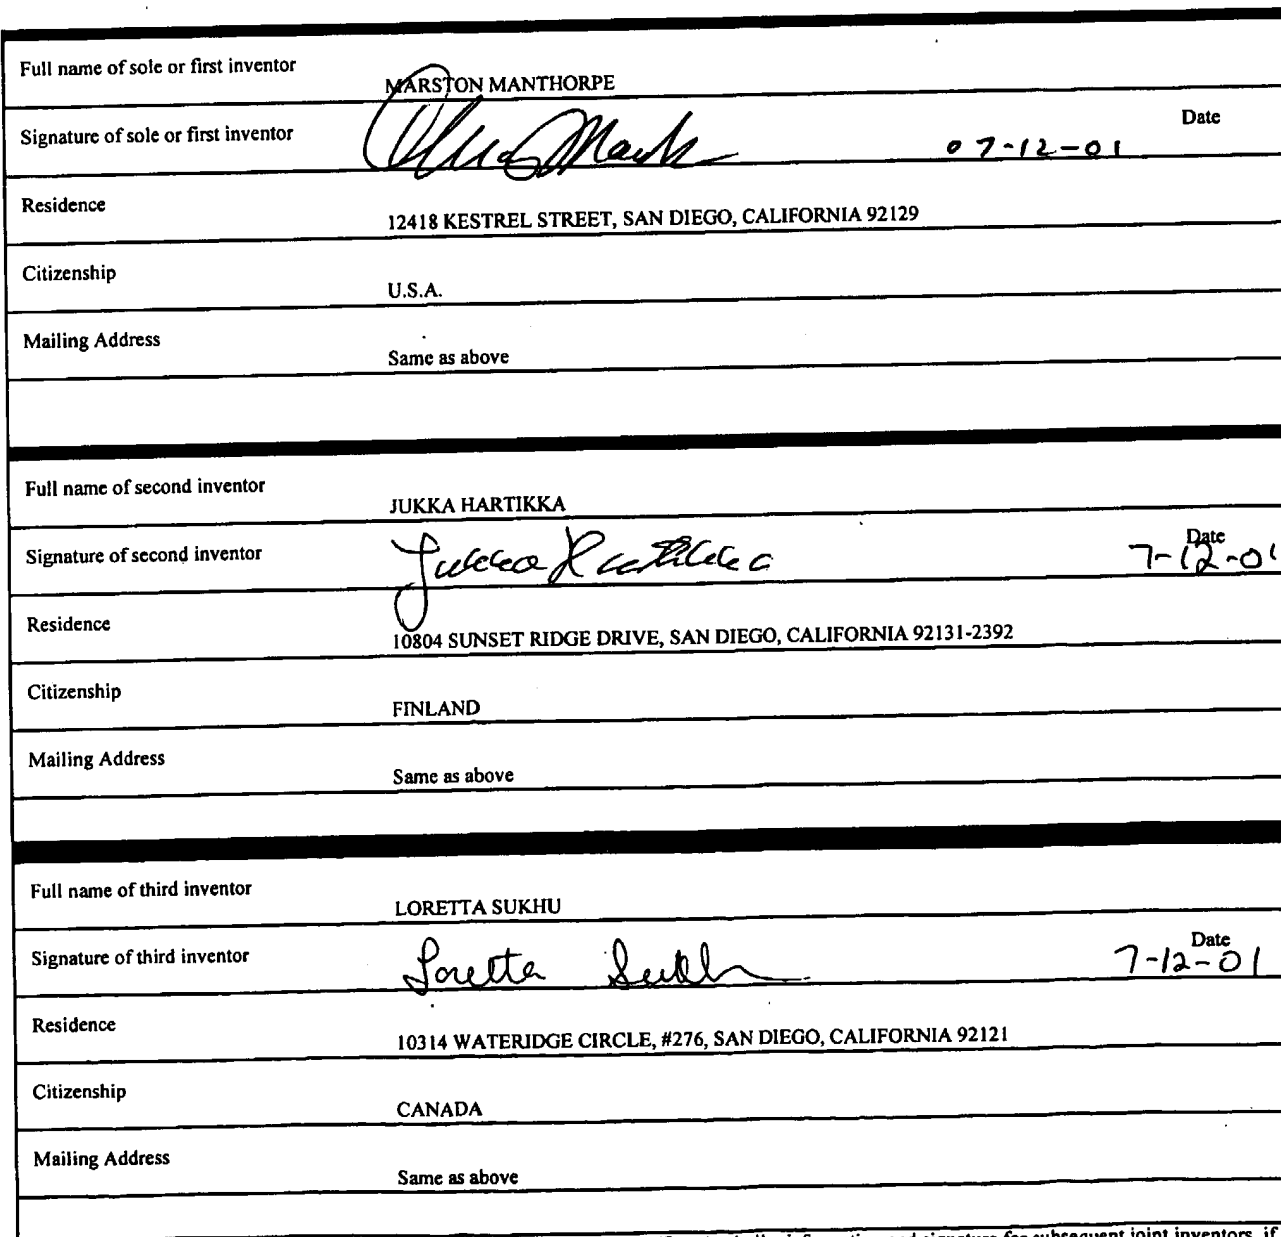 Full name of sole or first inventor
MARSTON MANTHORPE
Signature of sole or first inventor
Date
07-12-01
Residence
12418 KESTREL STREET, SAN DIEGO, CALIFORNIA 92129
Citizenship
U.S.A.
Mailing Address
Same as above
Full name of second inventor
JUKKA HARTIKKA
Signature of second inventor
Jukka Hartikka
Date
7-12-01
Residence
10804 SUNSET RIDGE DRIVE, SAN DIEGO, CALIFORNIA 92131-2392
Citizenship
FINLAND
Mailing Address
Same as above
Full name of third inventor
LORETTA SUKHU
Signature of third inventor
Loretta Sukhu
Date
7-12-01
Residence
10314 WATERIDGE CIRCLE, #276, SAN DIEGO, CALIFORNIA 92121
Citizenship
CANADA
Mailing Address
Same as above
information and signature for subsequent joint inventors, if